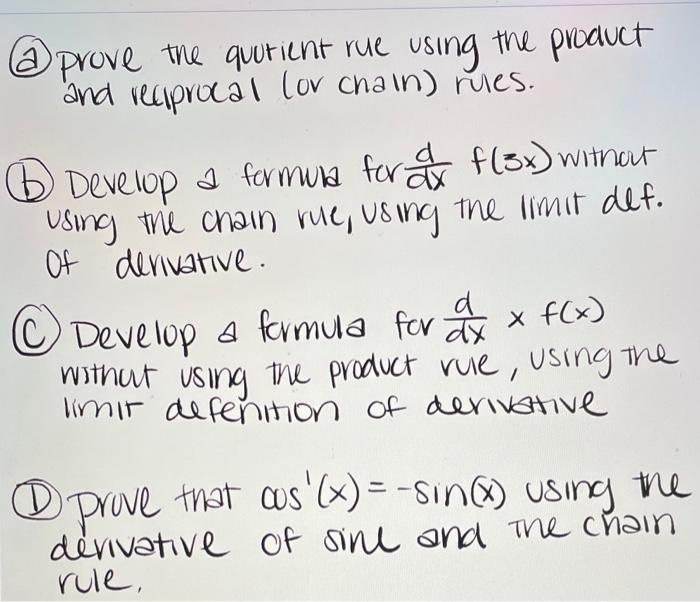 ⓐ prove the quotient rue using the product
and reciprocal (or chain) rules.
ⓑ Develop a formula for d/dx f(3x) without
using the chain rue, using the limit def.
Of derivative.
Ⓒ Develop a formula for d/dx x f(x)
without using the product rule, using the
limit defenition of derivative
Ⓓ prove that cos'(x) = -sin(x) using the
derivative of sine and the chain
rule.